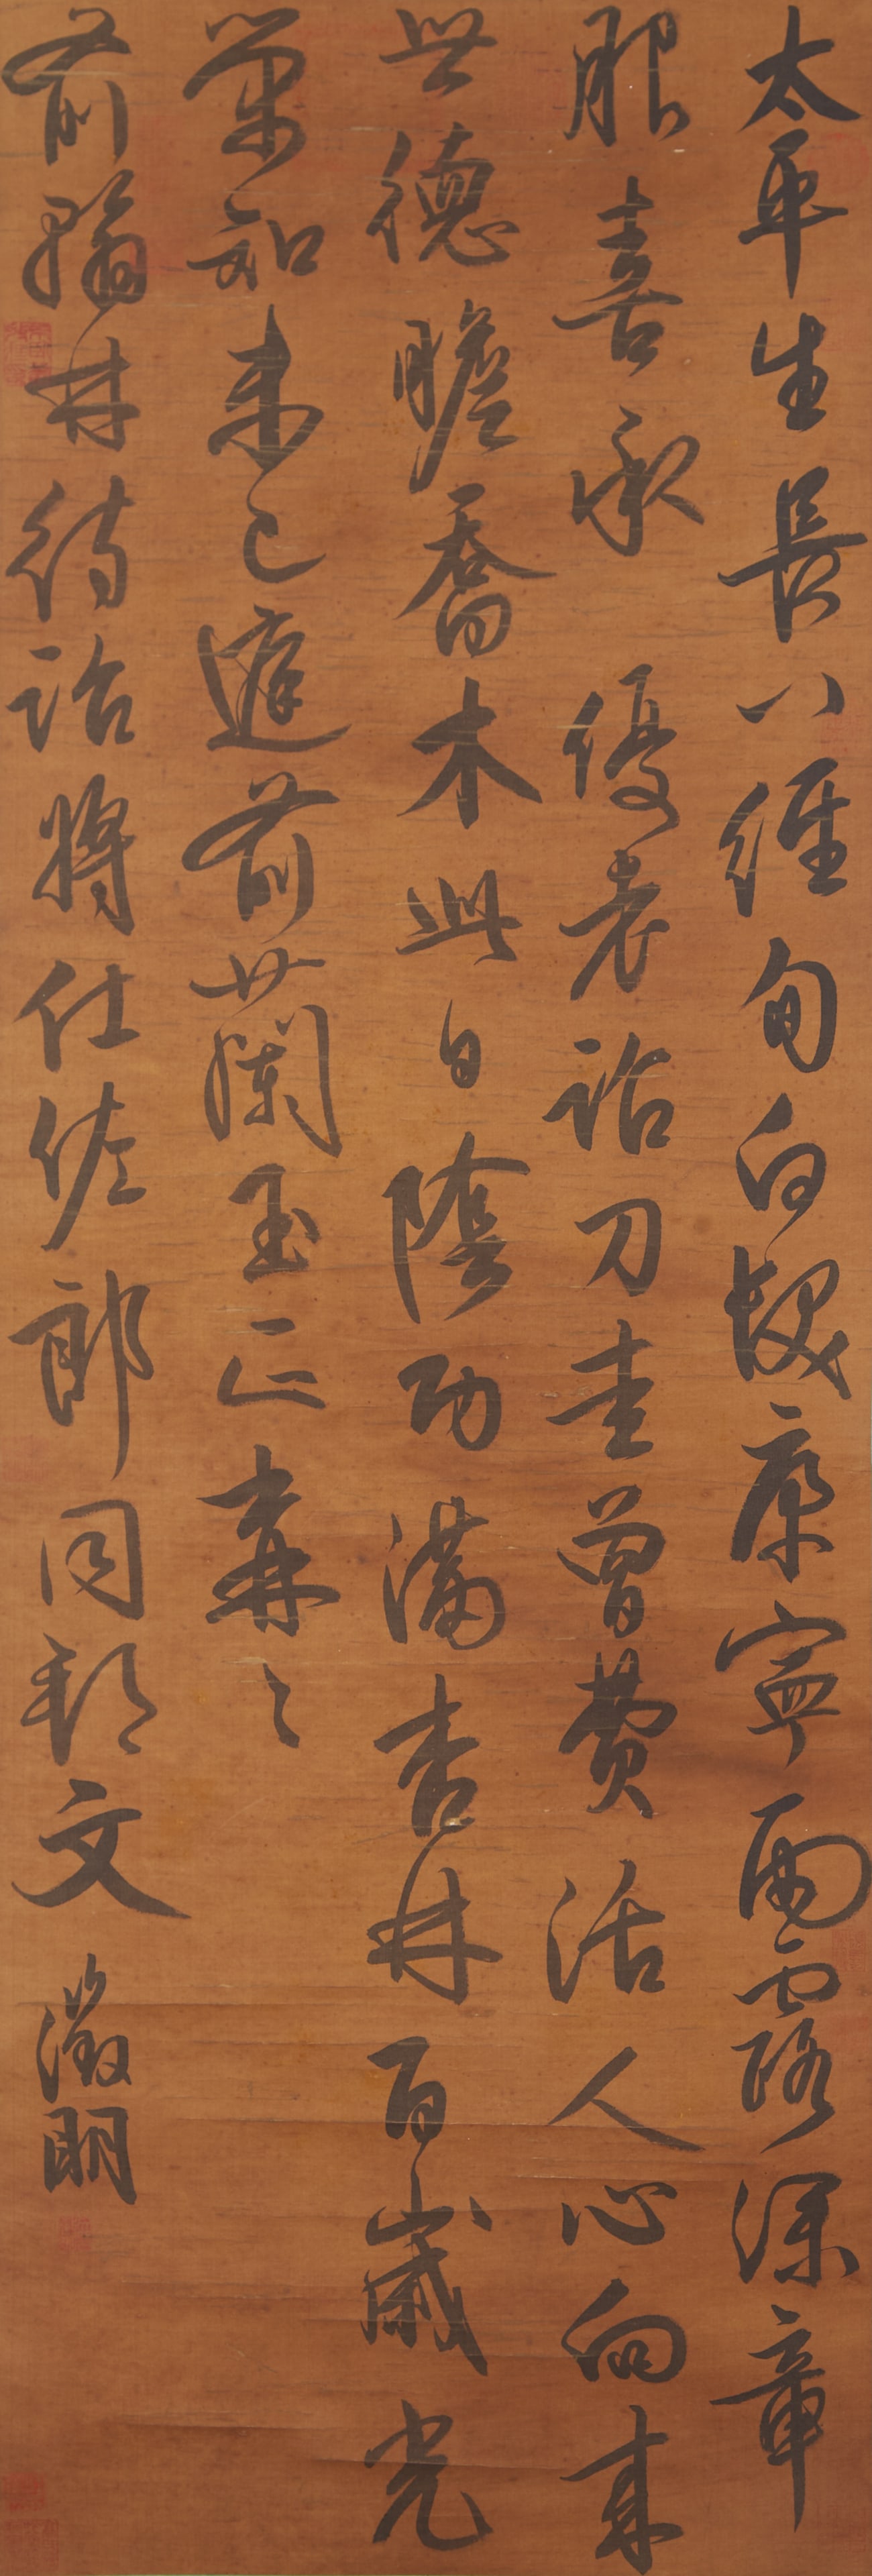 太平生長八經旬白髮康寧雨露深章
服喜承優老詔刀圭曾費活人心向来
世德瞻喬木此日陰功滿杏林百歲光
榮知未已庭前蘭玉正森〻
前翰林待詔將仕佐郎同郡文徵明